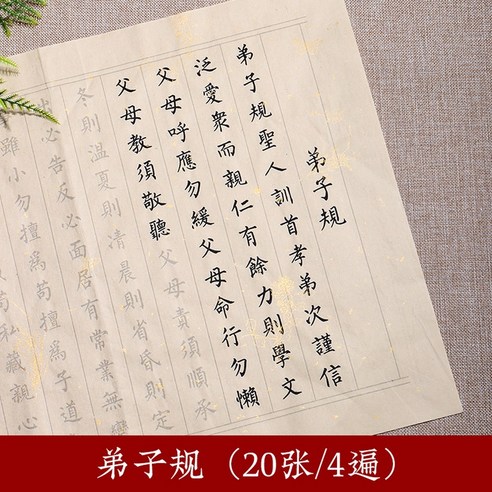 弟子規
弟子規聖人訓首孝弟次謹信
泛愛衆而親仁有餘力則學文
父母呼應勿緩父母命行勿懶
父母教須敬聽父母責須順承
冬則温夏則清晨則省昏則定
必告反必面居有常業無變
雖小勿擅爲苟擅爲子道
苟私藏親心
弟子规（20张/4遍）